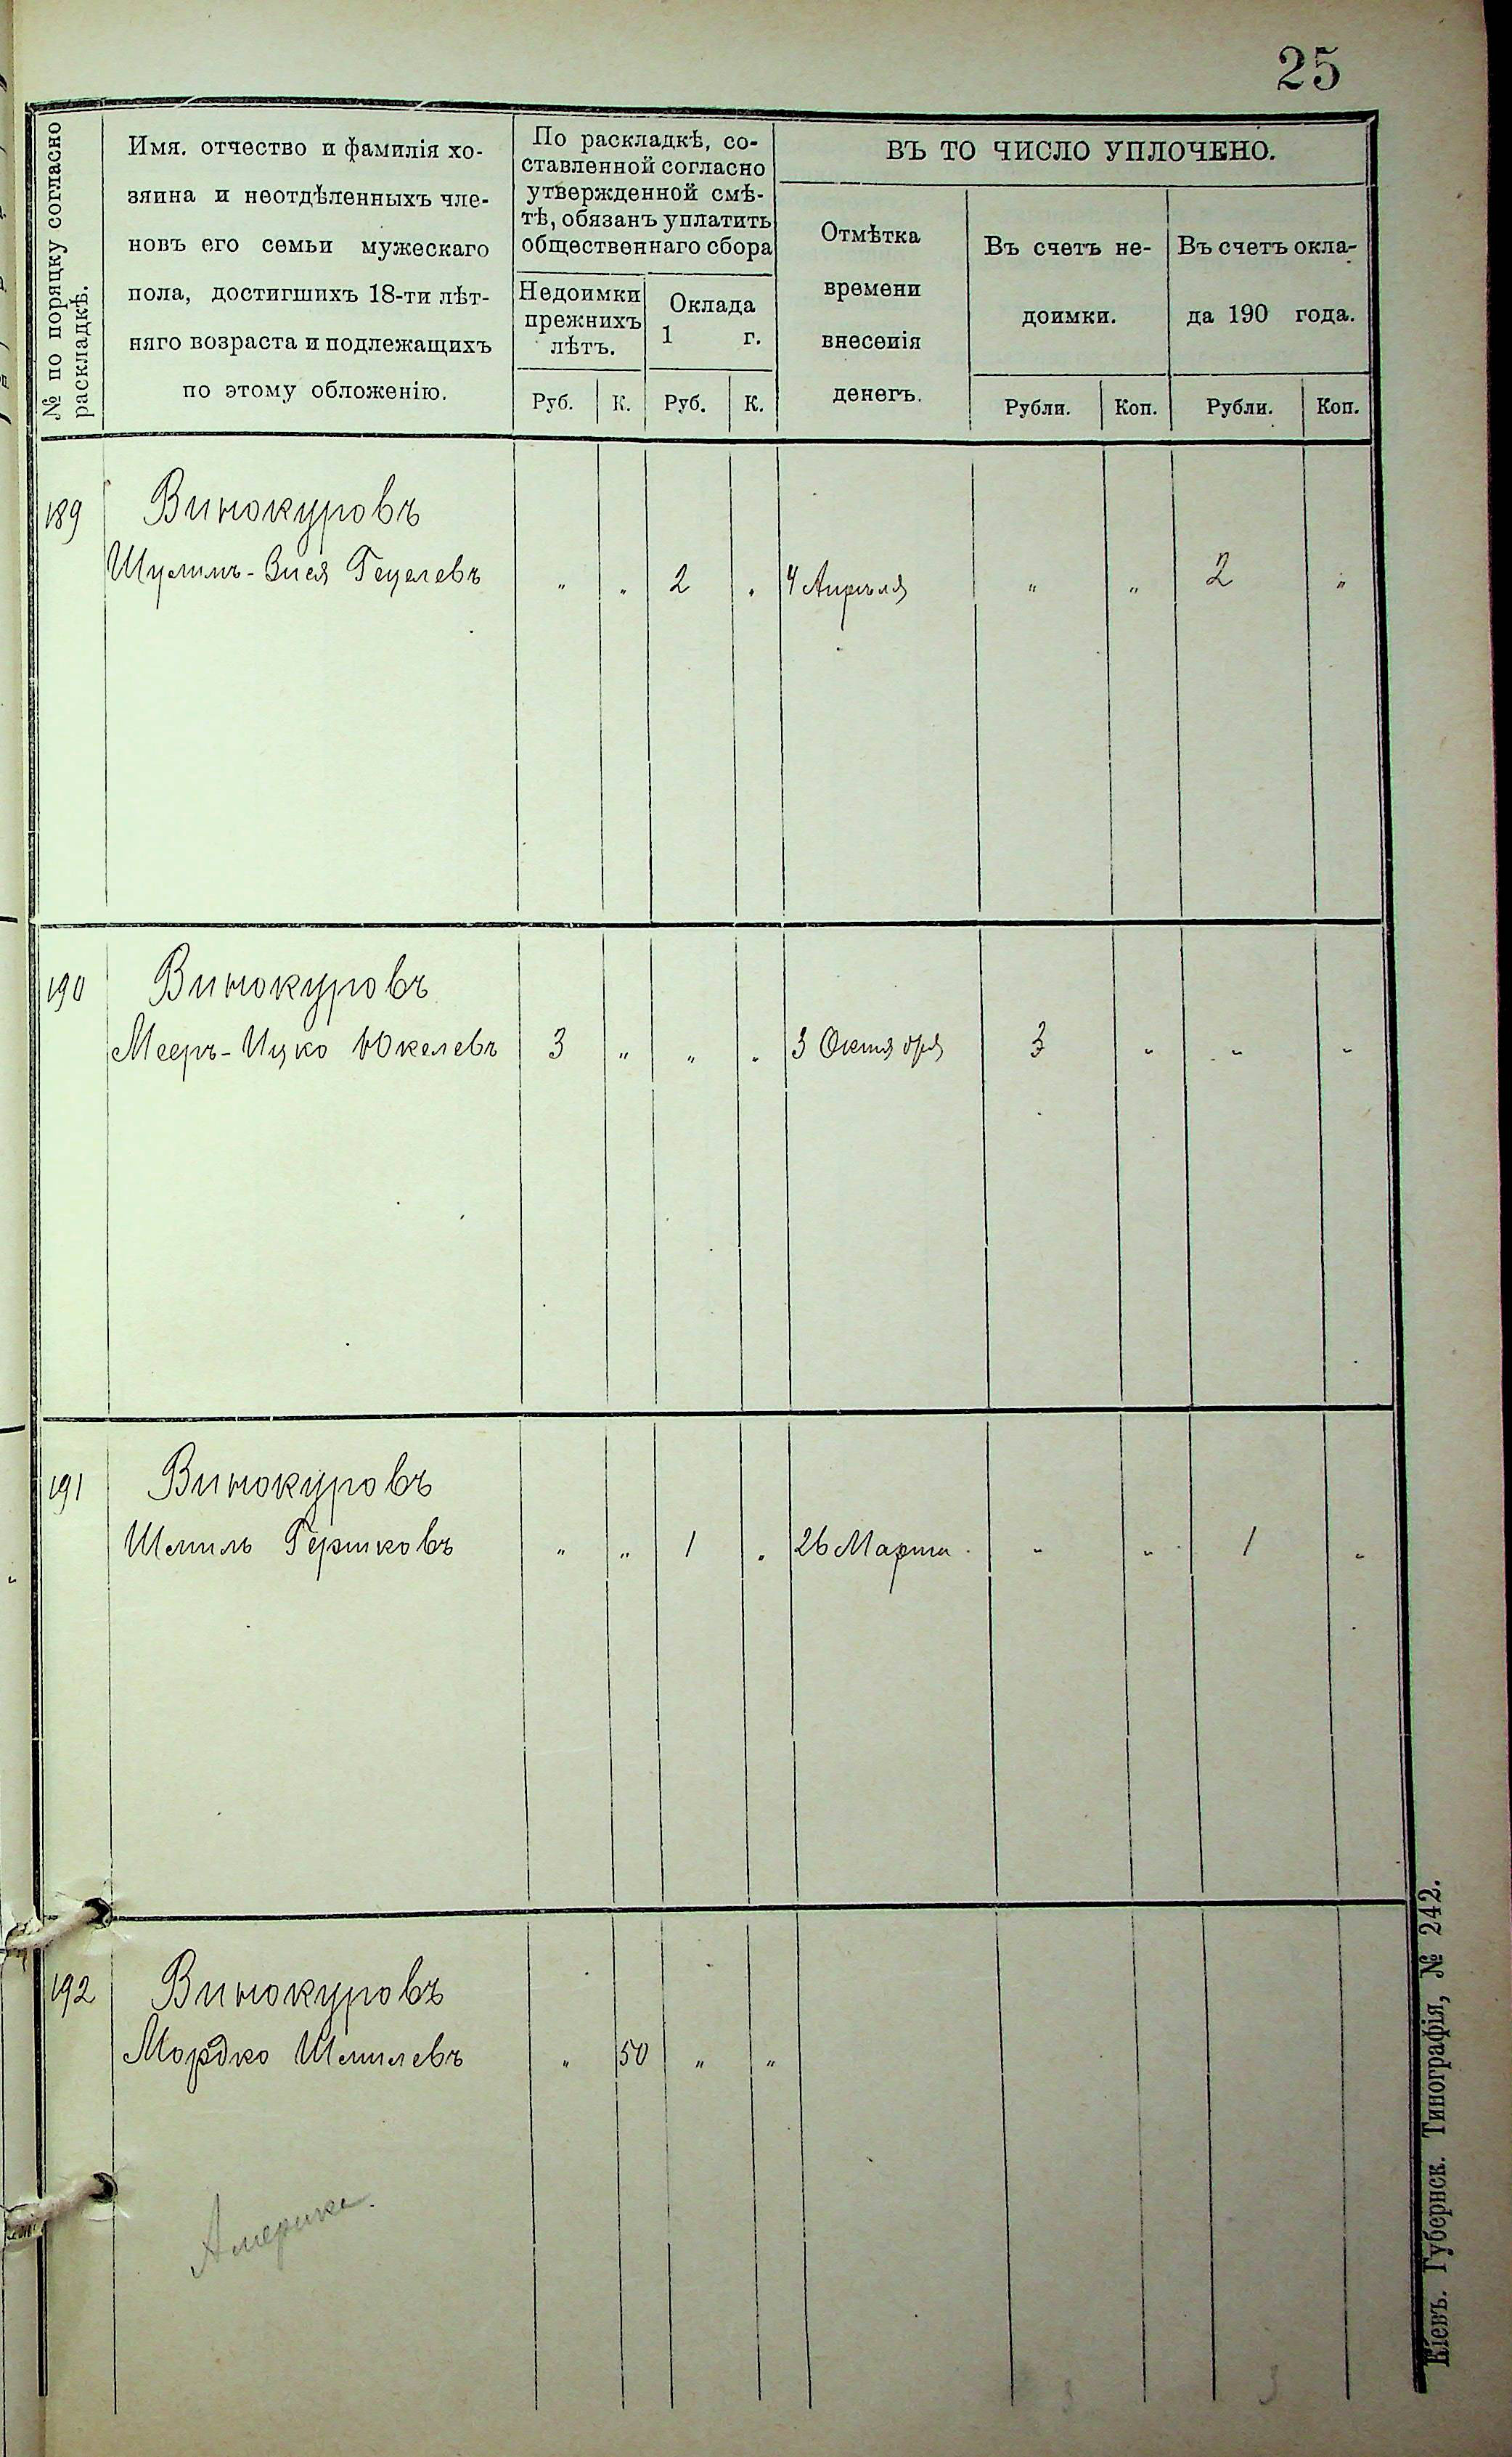 25
№ по порядку согласно
раскладкѣ.
Имя, отчество и фамилія хо-
зяина и неотдѣленныхъ чле-
новъ его семьи мужескаго
пола, достигшихъ 18-ти лѣт-
няго возраста и подлежащихъ
по этому обложенію.
По раскладкѣ, со-
ставленной согласно
утвержденной смѣ-
тѣ, обязанъ уплатить
общественнаго сбора
Недоимки
прежнихъ
лѣтъ.
Оклада
1 г.
Руб. К. Руб. К.
ВЪ ТО ЧИСЛО УПЛОЧЕНО.
Отмѣтка
времени
внесенія
денегъ.
Въ счетъ не-
доимки.
Въ счетъ окла-
да 190 года.
Рубли. Коп. Рубли. Коп.
189 Винокуровъ
Шулимъ-Зися Гецелевъ " " 2 " 4 Апрѣля " " 2 "
190 Винокуровъ
Мееръ-Ицко Юкелевъ 3 " " " 3 Октября 3 " " "
191 Винокуровъ
Шмиль Гершковъ " " 1 " 26 Марта " " 1 "
192 Винокуровъ
Мордко Шмилевъ " 50 " "
Америка.
3 3
Кіевъ. Губернск. Типографія, № 242.